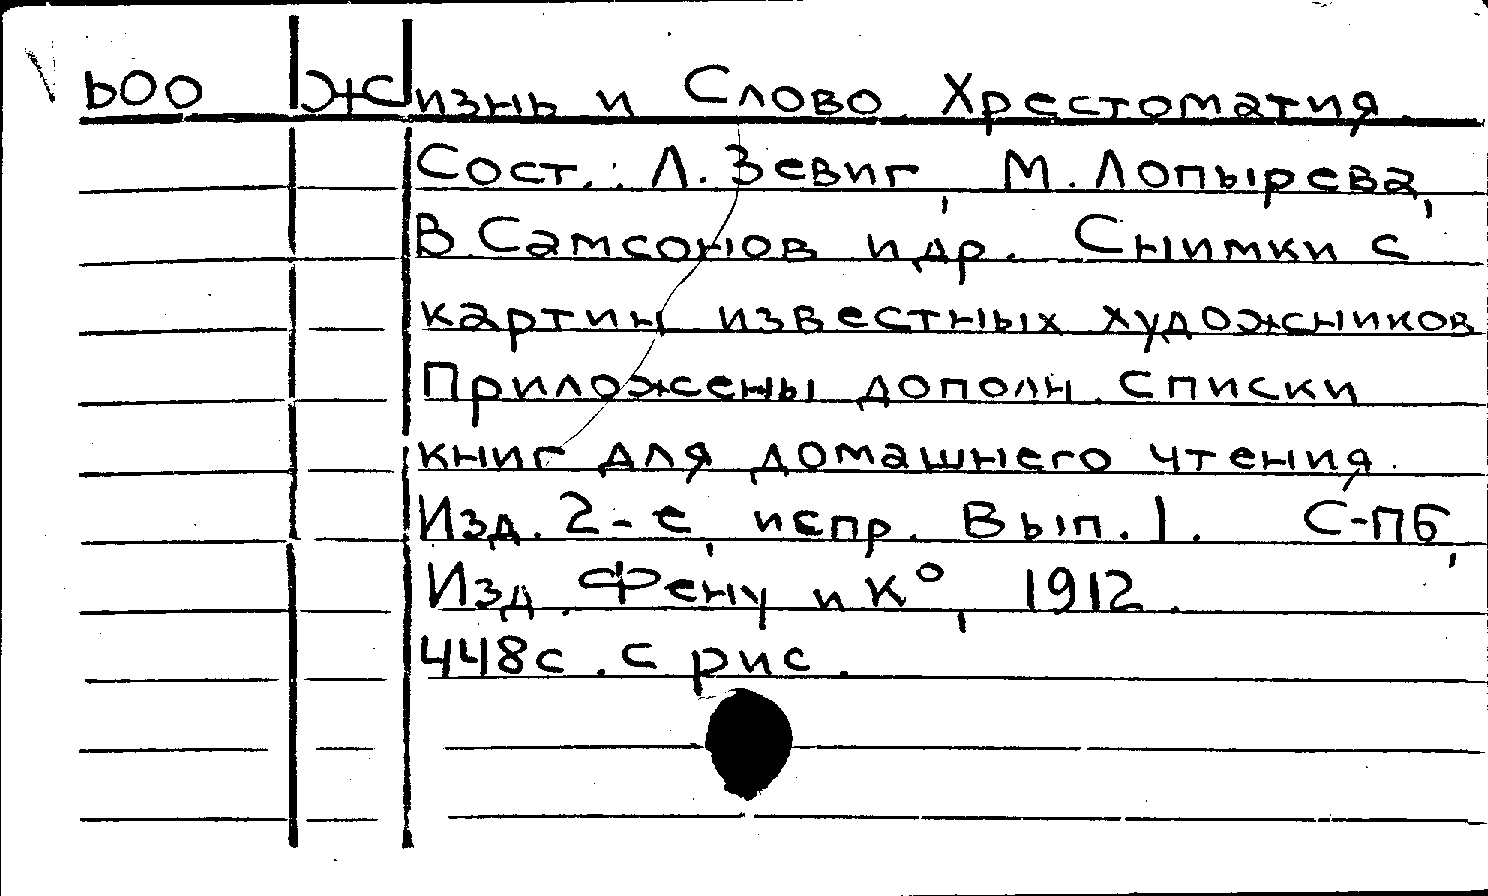 600 Жизнь и Слово. Хрестоматия.
Сост.: Л. Зевиг, М. Лопырева,
В. Самсонов и др. Снимки с
картин известных художников
Приложены дополн. списки
книг для домашнего чтения.
Изд. 2-е, испр. Вып. 1. С-ПБ,
Изд. Фену и К°, 1912.
448с. с рис.